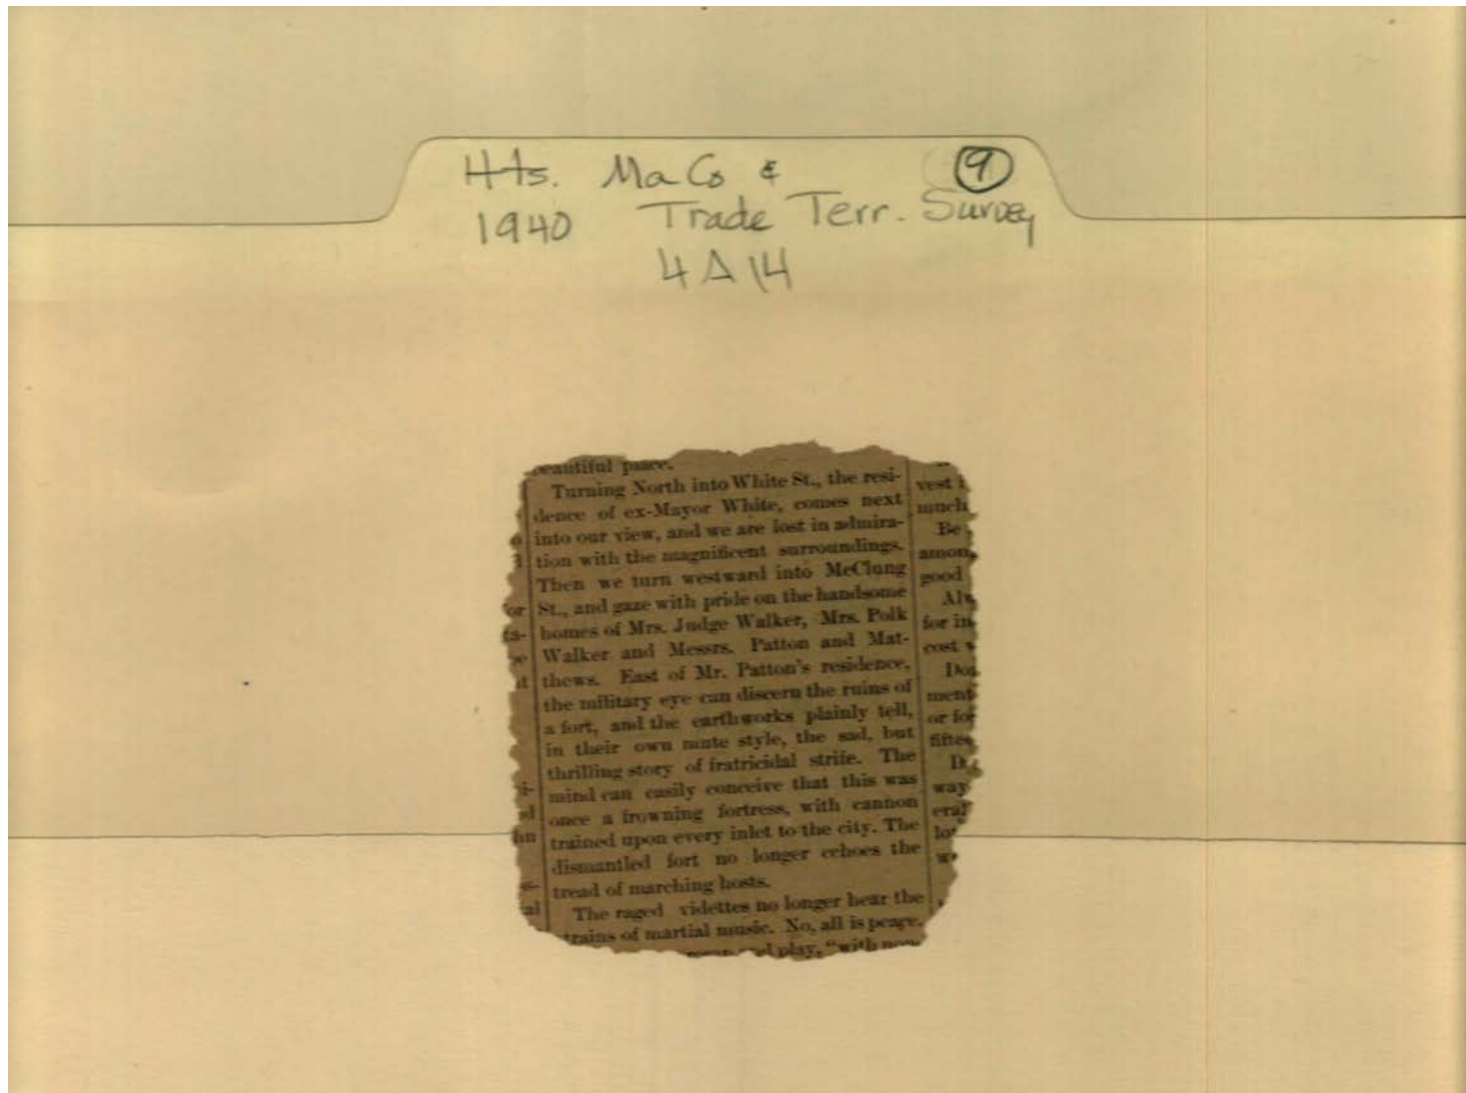 Hts. Ma Co & 9
1940 Trade Terr. Survey
4A14
beautiful
Turning North into White St., the resi-
dence of ex-Mayor White, comes next
into our view, and we are lost in admira-
tion with the magnificent surroundings.
Then we turn westward into McClung
St., and gaze with pride on the handsome
homes of Mrs. Judge Walker, Mrs. Polk
Walker and Messrs. Patton and Mat-
thews. East of Mr. Patton's residence,
the military eye can discern the ruins of
a fort, and the earthworks plainly tell,
in their own mute style, the sad, but
thrilling story of fratricidal strife. The
mind can easily conceive that this was
once a frowning fortress, with cannon
trained upon every inlet to the city. The
dismantled fort no longer echoes the
tread of marching hosts.
The raged videttes no longer hear the
trains of martial music. No, all is peace,
play, "with
vest
much
Be
amon
good
for in
cost
ment
or for
way